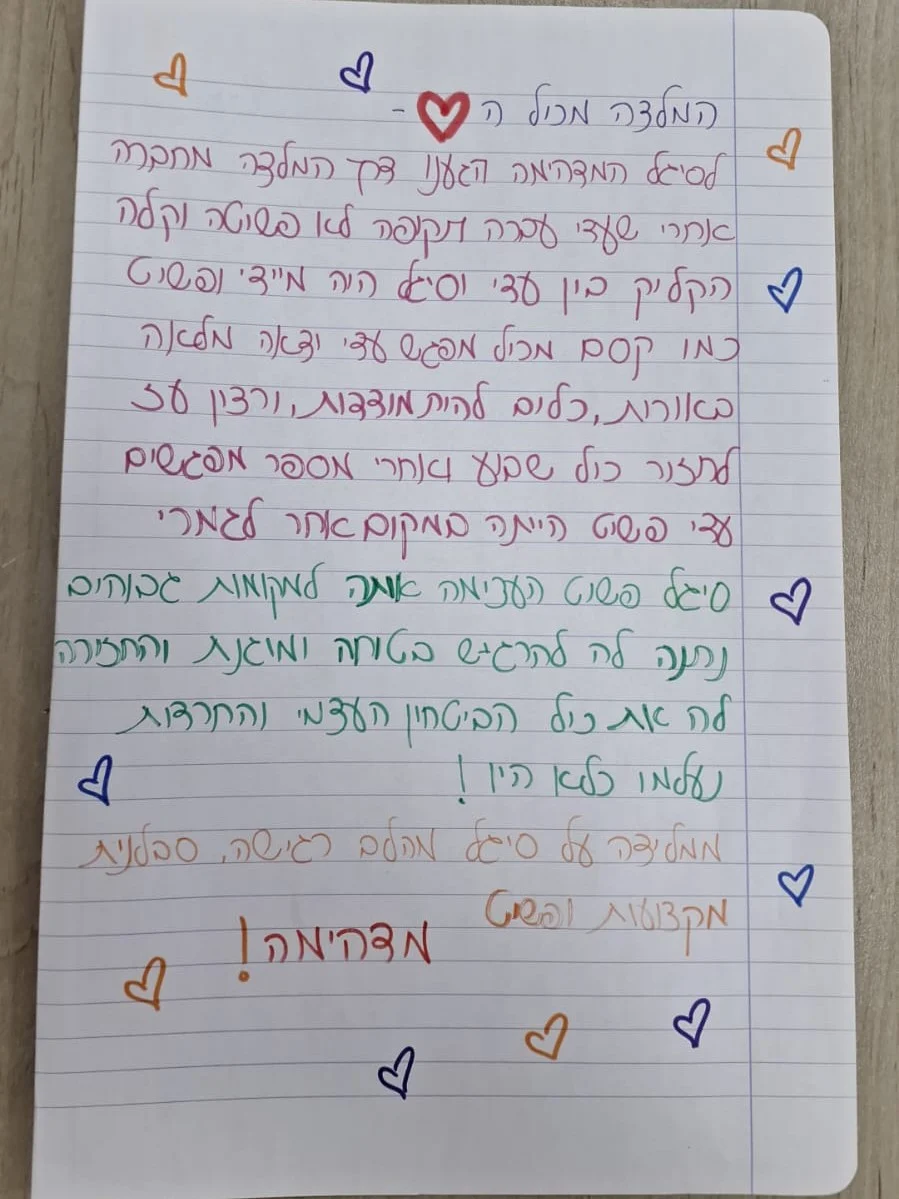 המלצה מכול ה -
לסיגל המדהימה הגענו דרך המלצה מחברה
אחרי שעדי עברה תקופה לא פשוטה וקלה
הקליק בין עדי וסיגל היה מיידי ופשוט
כמו קסם מכול מפגש עדי יצאה מלאה
באוורות, כלים להיתמודדות, ורצון עז
לחזור כול שבוע ואחרי מספר מפגשים
עדי פשוט הייתה במקום אחר לגמרי
סיגל פשוט העצימה אותה למקומות גבוהים
נתנה לה להרגיש בטוחה ומיגנת והחזירה
לה את כול הביטחון העצמי והחרדות
נעלמו כלא היו !
ממליצה על סיגל מהלב רגישה, סבלנית
מקצועות ופשוט
מדהימה!